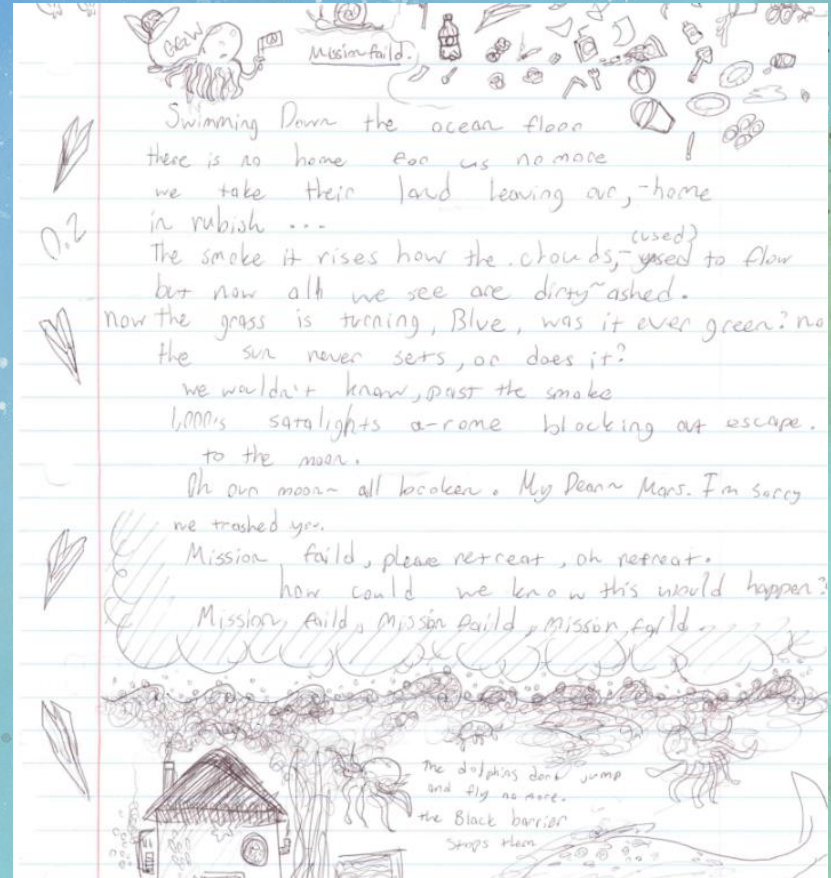 GRAW
Mission faild.
Swimming Down the ocean floor
there is no home for us no more
we take their land leaving our, -home
in rubish ...
(used)
The smoke it rises how the clouds,- used to flow
but now all we see are dirty~ashed.
now the grass is turning, Blue, was it ever green? no
the sun never sets, or does it?
we wouldn't know, past the smoke
1,000's satalights a-rome blocking our escape.
to the moon.
Oh our moon~ all brooken. My Dear~ Mars. I'm sorry
we trashed you.
Mission faild, please retreat, oh retreat.
how could we know this would happen?
Mission, faild, Mission faild, mission faild.
0.2
The dolphins dont jump
and fly no more.
the Black barrier
Stops them